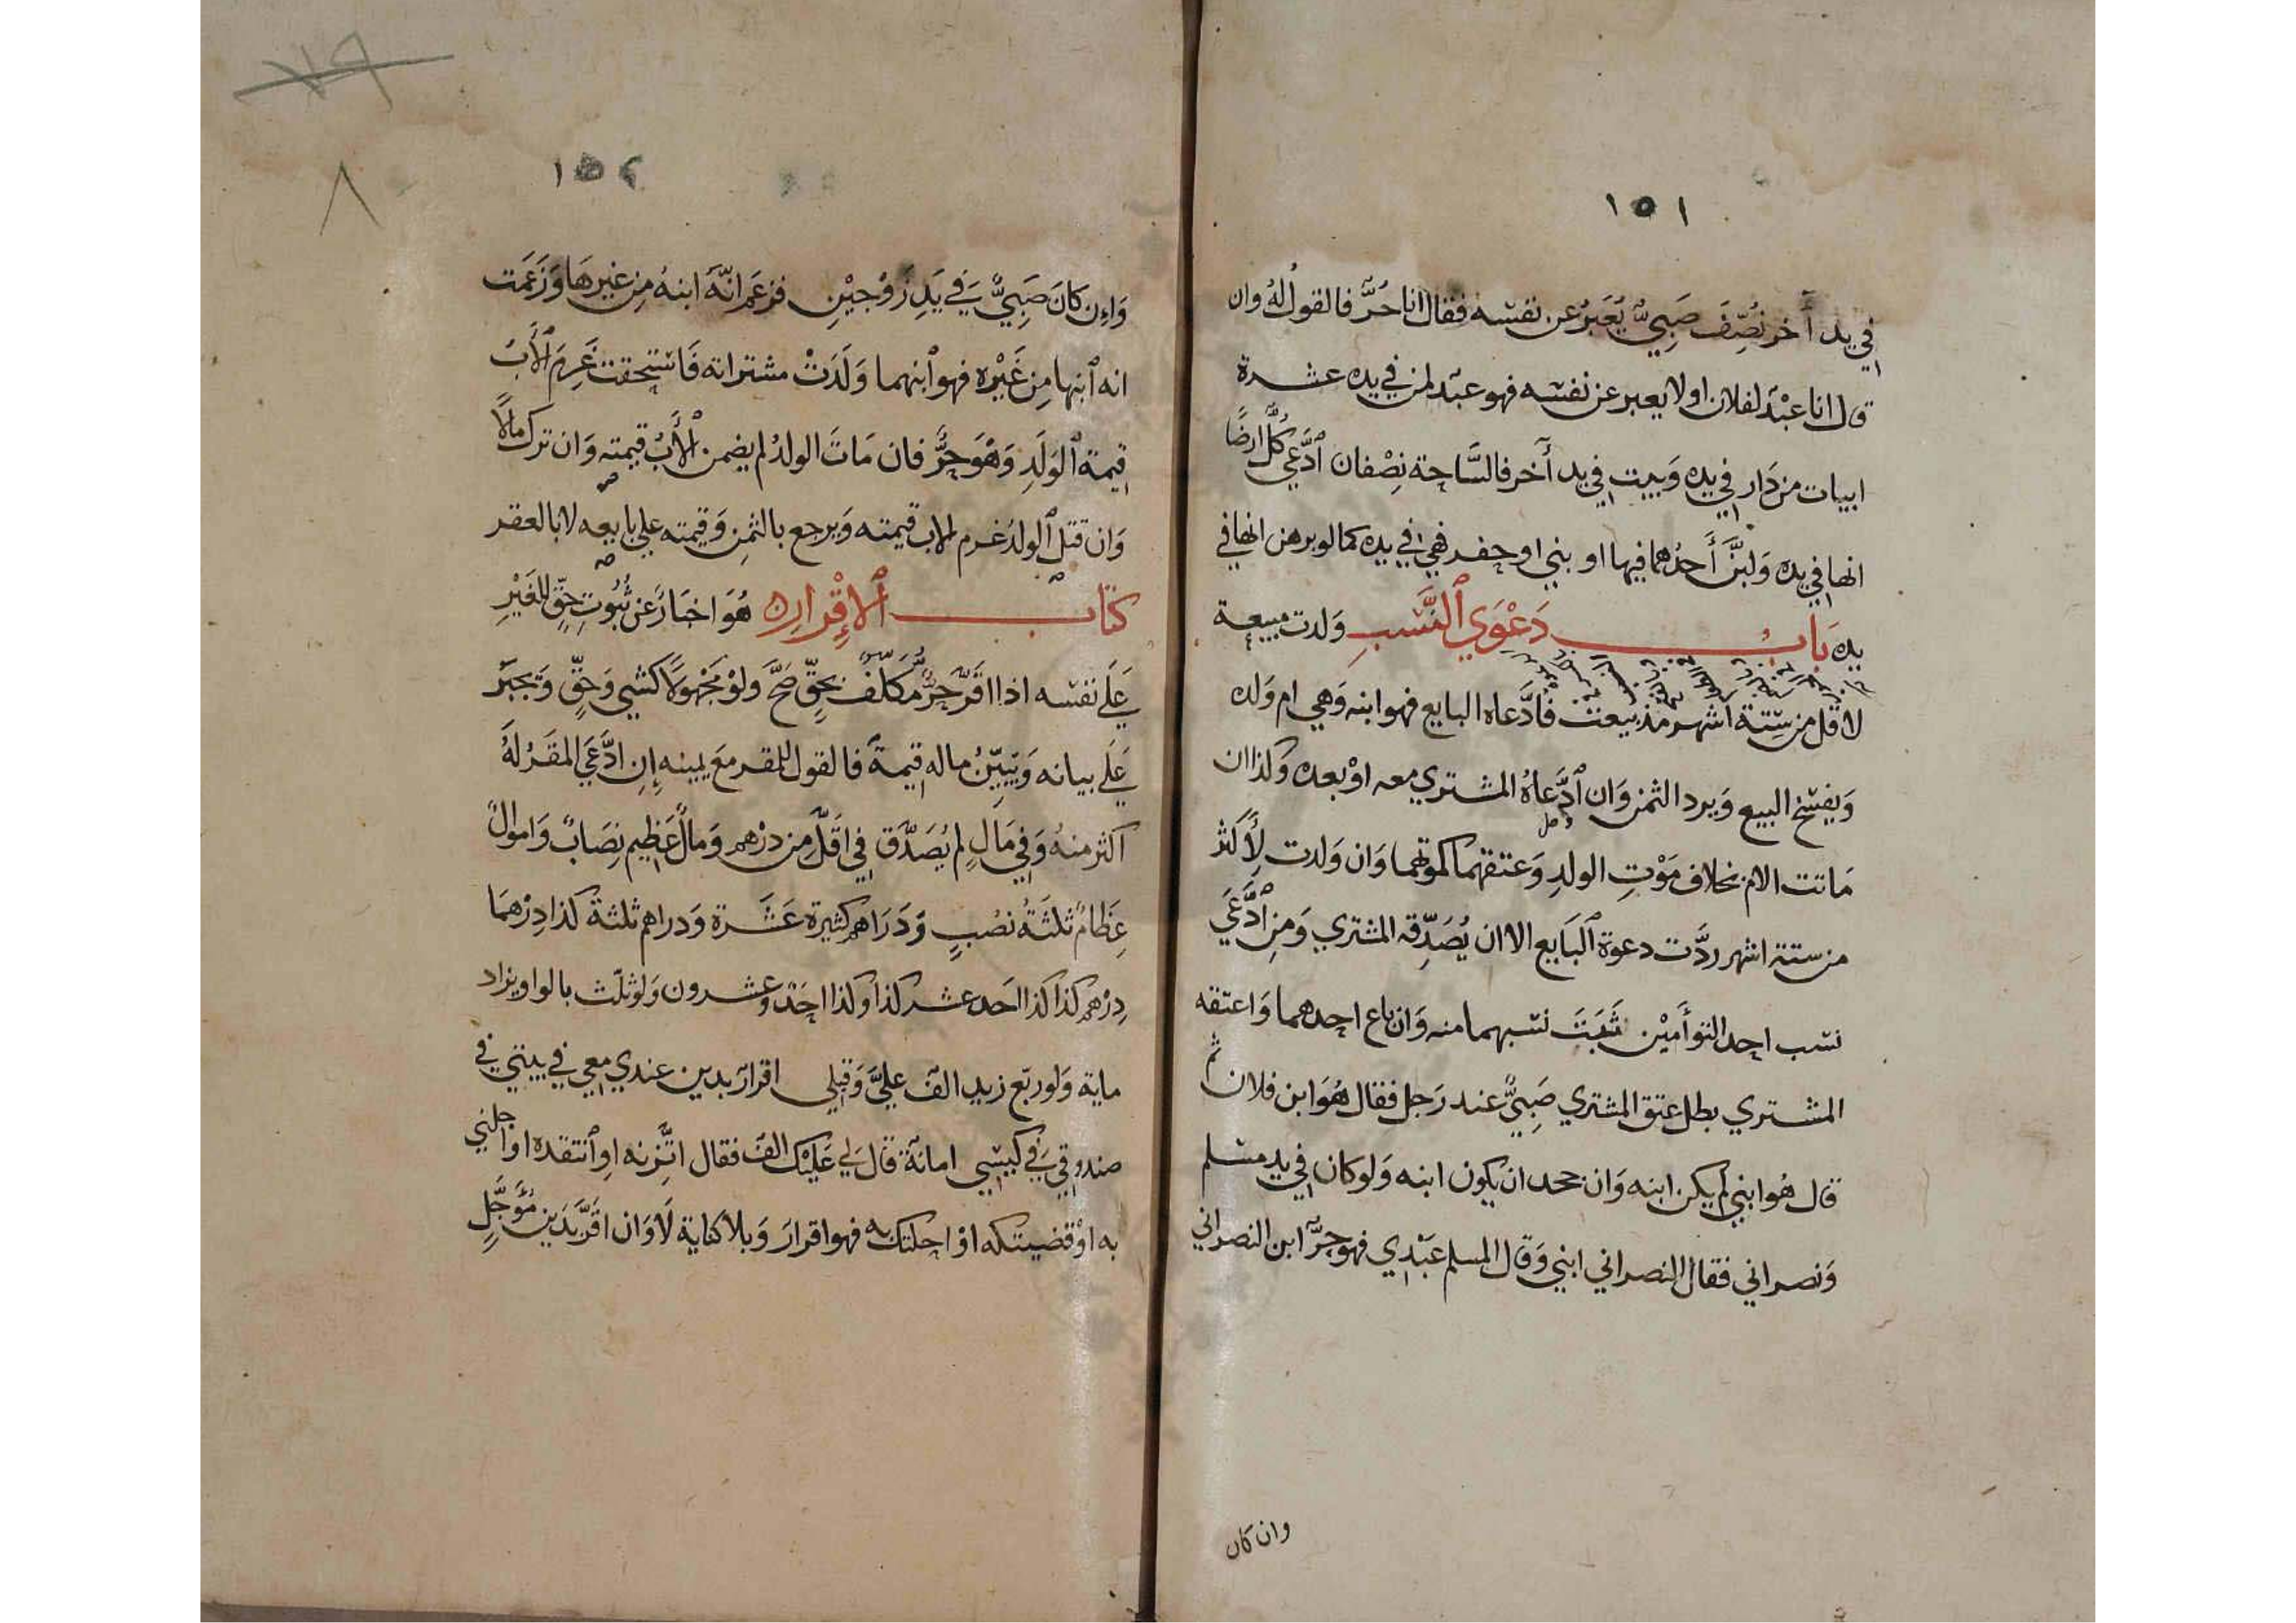 ١٥١
في يد آخر نُصِّفَ صَبِيٌّ يُعَبِّرُ عن نفسه فقال انا حُرٌّ فالقول لهُ وان
قال انا عبْدٌ لفلان او لا يعبر عن نفسه فهو عبدٌ لمن في يده عشرة
ابيات من دَار في يده وَبيت في يد آخر فالسَّاحة نِصْفان ٱدَّعي كُلٌّ ارضًا
انها في يده وَلبَّنَ أَحدُهما فيها او بني او حفر فهي في يده كما لو برهن انها في
يده بَابُ دَعْوَي ٱلنَّسَبِ وَلدت مبيعة
لاقل من سِّتة اشهر مذ بيعت فادَّعاه البايع فهو ابنه وَهي ام وَلده
وَيفسخ البيع وَيرد الثمن وَان ٱدَّعاهُ المشتري معه اوْ بعده وَكذا ان
مَاتت الام بخلاف مَوْتِ الولدِ وَعتقهما كموتهما وَان وَلدت لِأَكثر
من ستة اشهر ردَّت دعوة ٱلبَايع الا ان يُصَدِّقه المشتري وَمن ٱدَّعَي
نسب احد التوأَميْن ثَبَتَ نسبهما منه وَان باع احدهما وَاعتقه
المشتري بطل عتق المشتري صَبِيٌّ عند رَجل فقال هُوَ ابن فلان ثم
قال هُو ابني لم يكن ابنه وَان جحد ان يكون ابنه وَلو كان في يد مسلم
وَنصراني فقال النصراني ابني وَقال المسلم عَبْدِي فهو حرٌّ ابن النصراني
وان كان
١٥٢
٨
وَاِن كانَ صَبِيٌّ فِي يَدِ زَوْجيْنِ فزعَمَ انَّهُ ابنهُ مِن غيرِهَا وَزَعَمَت
انه ٱبنها مِن غَيْره فهو ٱبنهما وَلَدَتْ مشتراته فَاستحقت غَرِمَ ٱلْأَبُ
قيمة ٱلوَلَدِ وَهْوَ حرٌّ فان مَاتَ الولدُ لم يضمن الْأَبُ قيمته وَان ترك مالًا
وَان قتل ٱلولدُ غرم الاب قيمته وَيرجع بالثمنِ وَقيمته علي بايعه لا بالعقر
كتاب ٱلاِقْرارِ هُوَ اخبَارٌ عن ثُبُوتِ حقٍّ للغَيْرِ
عَلَي نفسه اذا اقرَّ حرٌّ مُكلّفٌ بحقٍّ صَحَّ ولوْ مَجْهولًا كشي وَحقٍّ وَيجبَرُ
عَلَي بيانه وَيبَيِّنُ ماله قيمةٌ فالقول للمقر معَ يمينه اِن ادَّعَي المقَرُّ لهُ
اكثر منهُ وَفي مَالٍ لم يُصَدَّق في اقَلَّ مِن درْهم وَمالٌ عَظِيم نِصَابٌ وَاموالٌ
عِظَامٌ ثلثَةُ نصُبٍ وَدَرَاهم كثيرة عَشَرة وَدراهم ثلثة كذا دِرْهمَا
دِرْهم كذا كذا احَد عشر كذا وكذا احَدٌ وعشرون وَلو ثلّث بالواو يزاد
ماية وَلو ربّع زيد الف عليَّ وَقِبَلي اقرارٌ بدين عندي معي في بيتي في
صندوقي في كيسِي امانةٌ قَال لِي عَلَيْكَ الف فقال اتَّزِنه او ٱنتقده او اجلني
به اوْ قضيتكه اوْ احلتك به فهو اقرار وَبلا كناية لَا وَان اقرَّ بدَين مُؤَجَّلٍ